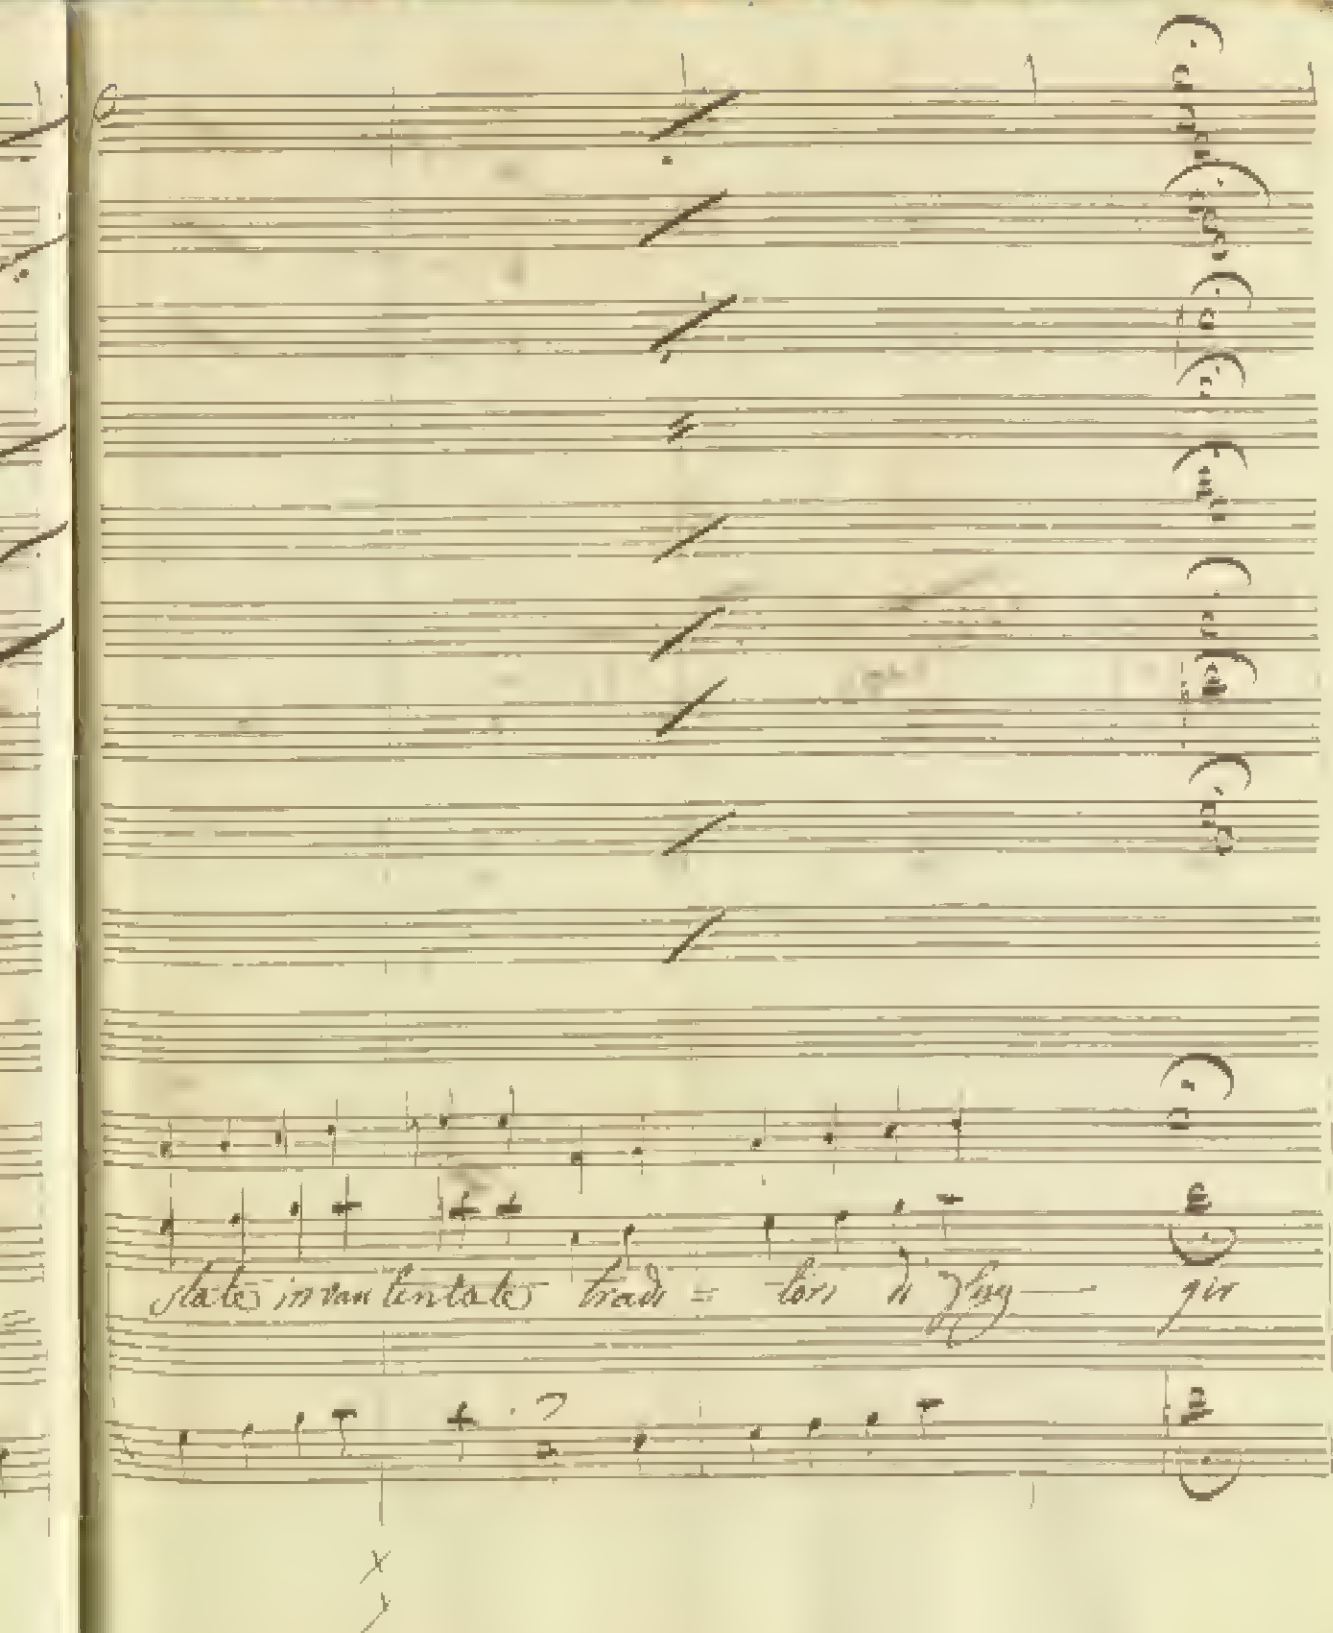 state invan tentate tradi = tori di sfug — gir